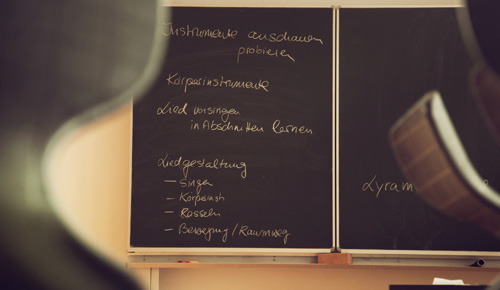 Instrumente anschauen
probieren
Körperinstrumente
Lied vorsingen
in Abschnitten lernen
Liedgestaltung
- Singen
- Körperinstr
- Rasseln
- Bewegung / Raumweg
Lyram